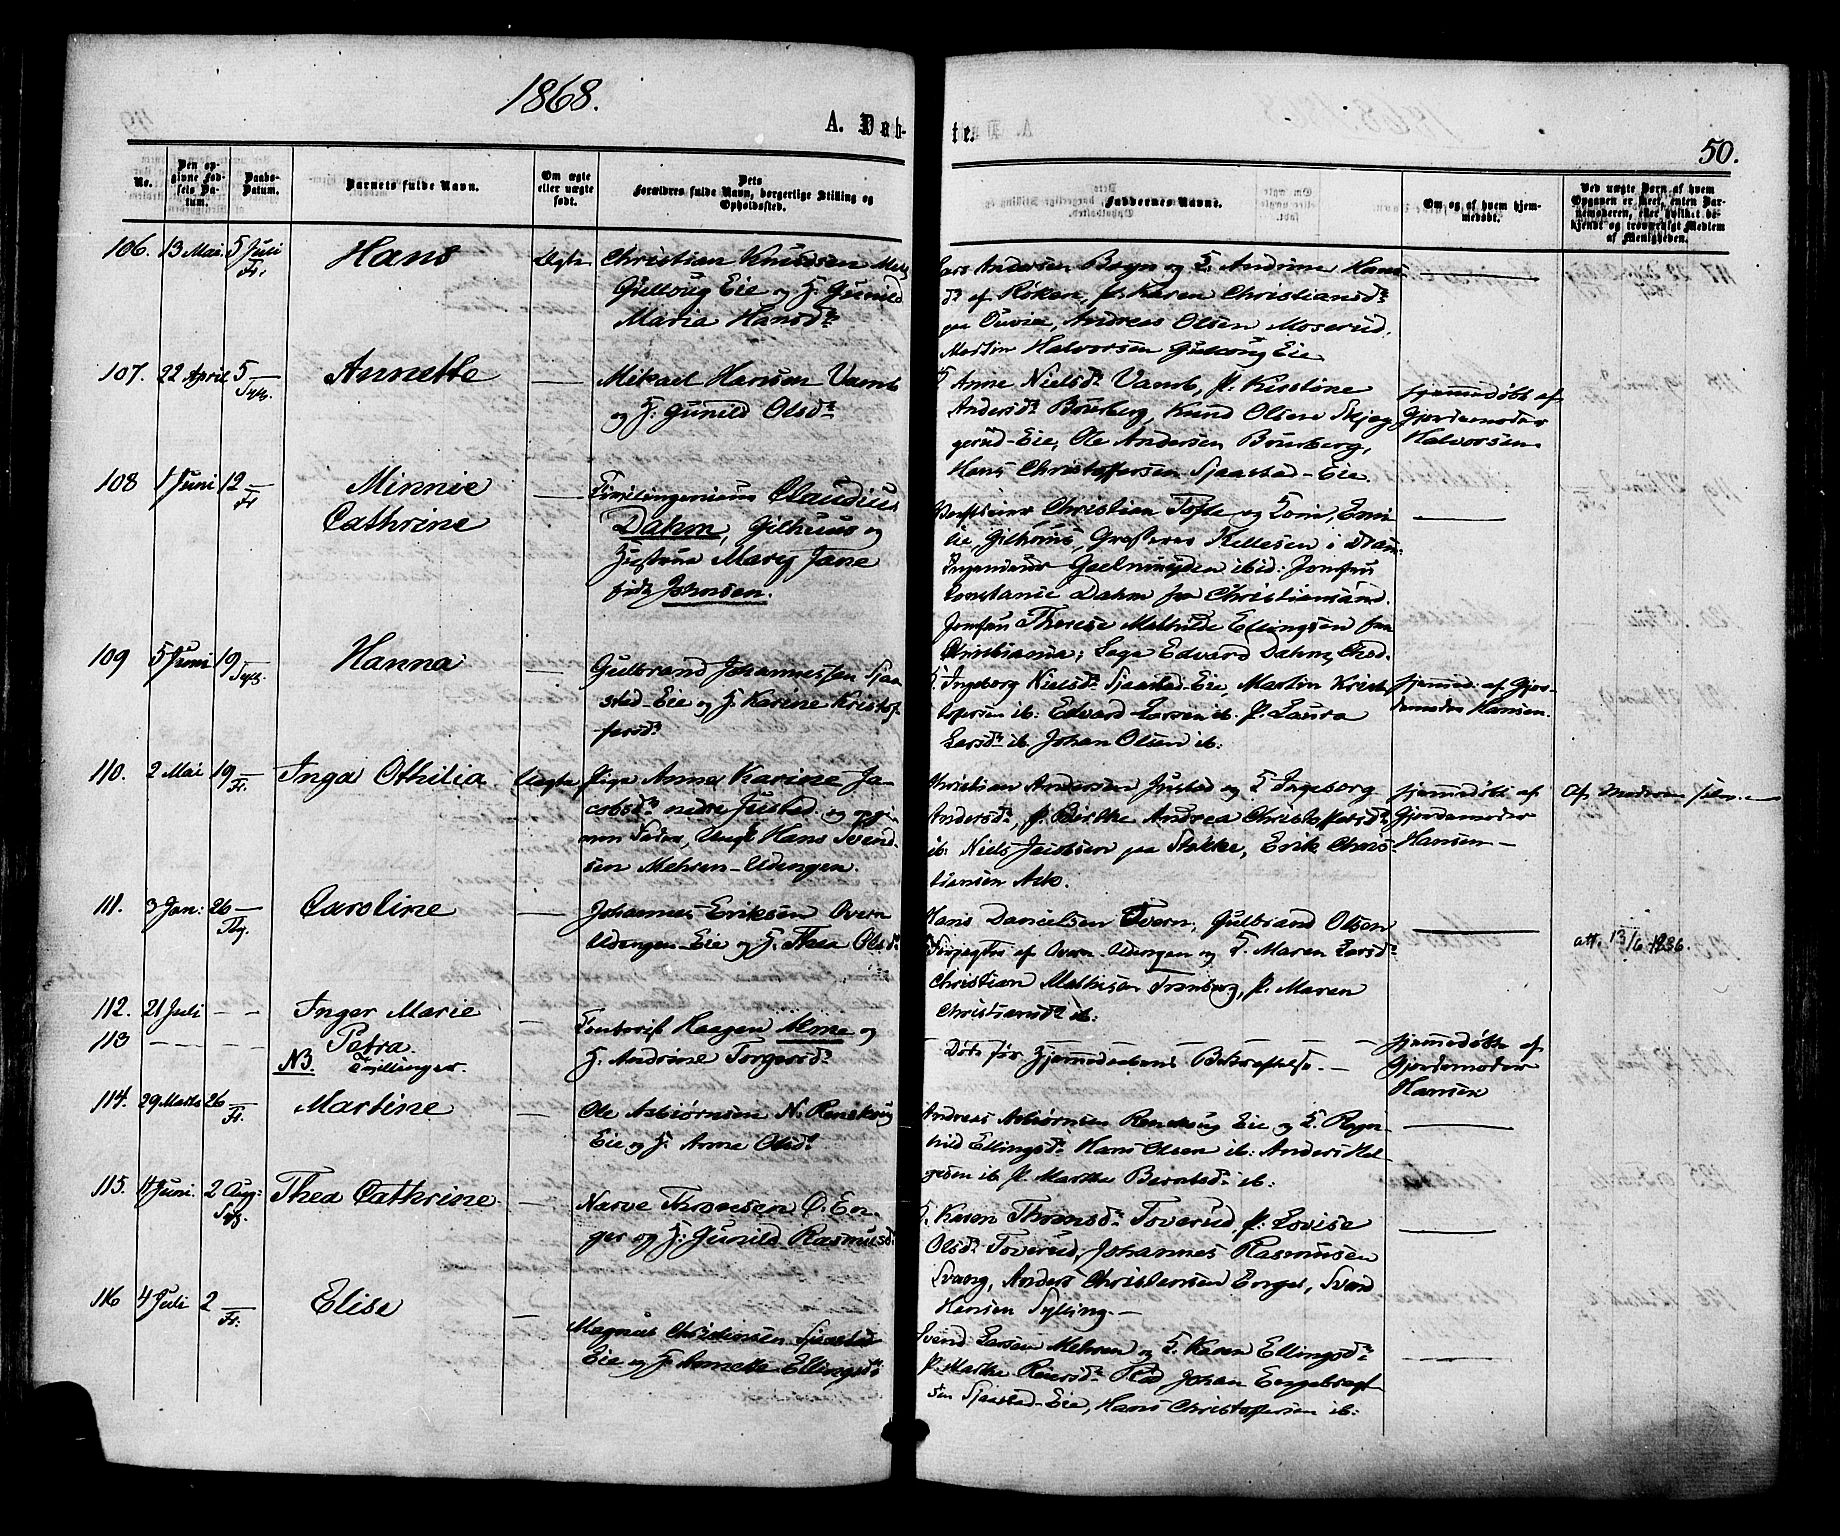 1868.
A. Døb-
te.
50.
No.
Den op-
givne Fød-
sels Da-
tum.
Daabs-
Datum.
Barnets fulde Navn.
Om ægte
eller uægte
født.
Dets
Forældres fulde Navn, borgerlige Stilling og
Opholdssted.
Faddernes Navne.
Om og af hvem hjem-
medøbt.
Ved uægte Børn af hvem
Opgaven er skeet, enten Bar-
nemoderen, eller hvilket be-
kjendt og troværdigt Medlem
af Menigheden.
106. 13 Mai. 5 Juli Fr. Hans Ægte Christian Knudsen
Gulloug Eie og H. Gunild
Maria Hansdr
Lars Andersen Bogn og H. Andrine Hans
dr af Röken, P. Karen Christiansdr
paa Ouvie, Andreas Olsen Moserud,
Martin Halvorsen Gulloug Eie
107. 22 April 5 Sylg. Annette — Mikael Hansen Vamb
og H. Gunild Olsdr
Anne Nielsdr Vamb, P. Kisstine
Andersdr Bourberg, Knud Olsen Skjeg
gerud-Eie, Ole Andersen Bourberg,
Hans Christoffersen Sjaastad-Eie.
hjemmedöbt af
Gjordemoder
Halvorsen
108 1 Juni 12 Fr. Minnie
Cathrine — Civilingenieur Claudius
Dahm, Gilhuus og
Hustru Mary Jane
född Johnsen.
Christian Tofte og Emi-
lie, Gilhuus, Kellesen i Dram.
Geelmuyden ibid: Jomfru
Constance Dahm fra Christiansand.
Jomfru Therese Mathilde Ellingsen fra
Christiania; Edvard Dahm,
109 5 Juni 19 Sylg. Hanna — Gulbrand Johannessen Sjaa-
stad-Eie og H. Karine Kristof-
fersdr
H. Ingeborg Nielsdr Sjaastad-Eie, Martin Krist
ofersen ib: Edvard Larsen ib. P. Laura
Larsdr ib. Johan Olsen ib.
hjemmed: af Gjor-
demoder Hansen.
110. 2 Mai 19 Fr. Inga Othilia Uægte Pige Anna Karine Ja-
cobsdr nedre Justad og
Ungk Hans Svend-
sen Mehren-Udengen.
Christian Andersen Justad og H. Ingeborg
Andersdr, P. Birthe Andrea Christoffersdr
ib. Niels Jacobsen paa Stokke, Erik Chris-
tiansen Ask.
hjemmedöbt af
Gjordemoder
Hansen —
Af Moderen selv. —
111. 3 Jan: 26 Tlg. Caroline — Johannes Eriksen Overn
Udengen-Eie og H. Thea Olsdr
Hans Danielsen Overn, Gulbrand Olsen
af Overn Udengen og H. Maren Larsdr
Christian Mathisen Tronberg, P. Maren
Christiansdr ib.
att. 13/6 1886.
112. 21 Juli — — Inger Marie
113 — — — Petra
NB. Tvillinger.
— Haagen Alme og
H. Andrine Torgersdr
— Döde för Hjemmedaabens Bekræftelse. —
hjemmedöbt af
Gjordemoder
Hansen
114. 29 Marts 26 Fr. Martine — Ole Asbiørnsen N. Renskoug
Eie og H. Anne Olsdr
Andreas Asbiørnsen Renskoug Eie og H. Ragn-
hild Ellingsdr Hans Olsen ib: Anders Hel-
gesen ib P. Marthe Berntsdr ib:
115. 11 Juni. 2 Aug: Sylg. Thea Cathrine — Narve Thronsen Ö. En-
ger og H. Gunild Rasmusdr
H. Karen Thronsdr Toverud, P. Lovise
Olsdr Toverud, Johannes Rasmusen
Svang, Anders Christensen Enger, Svend
Hansen Sylling. —
116 4 Juli 2 Fr. Elise — Magnus Christensen Sjaastad
Eie og H. Annette Ellingsdr
Svend Larsen Mehren og H. Karen Ellingsdr
P. Marthe Reiersdr Rød Johan Engebregt-
sen Sjaastad-Eie, Hans Christoffersen ib: